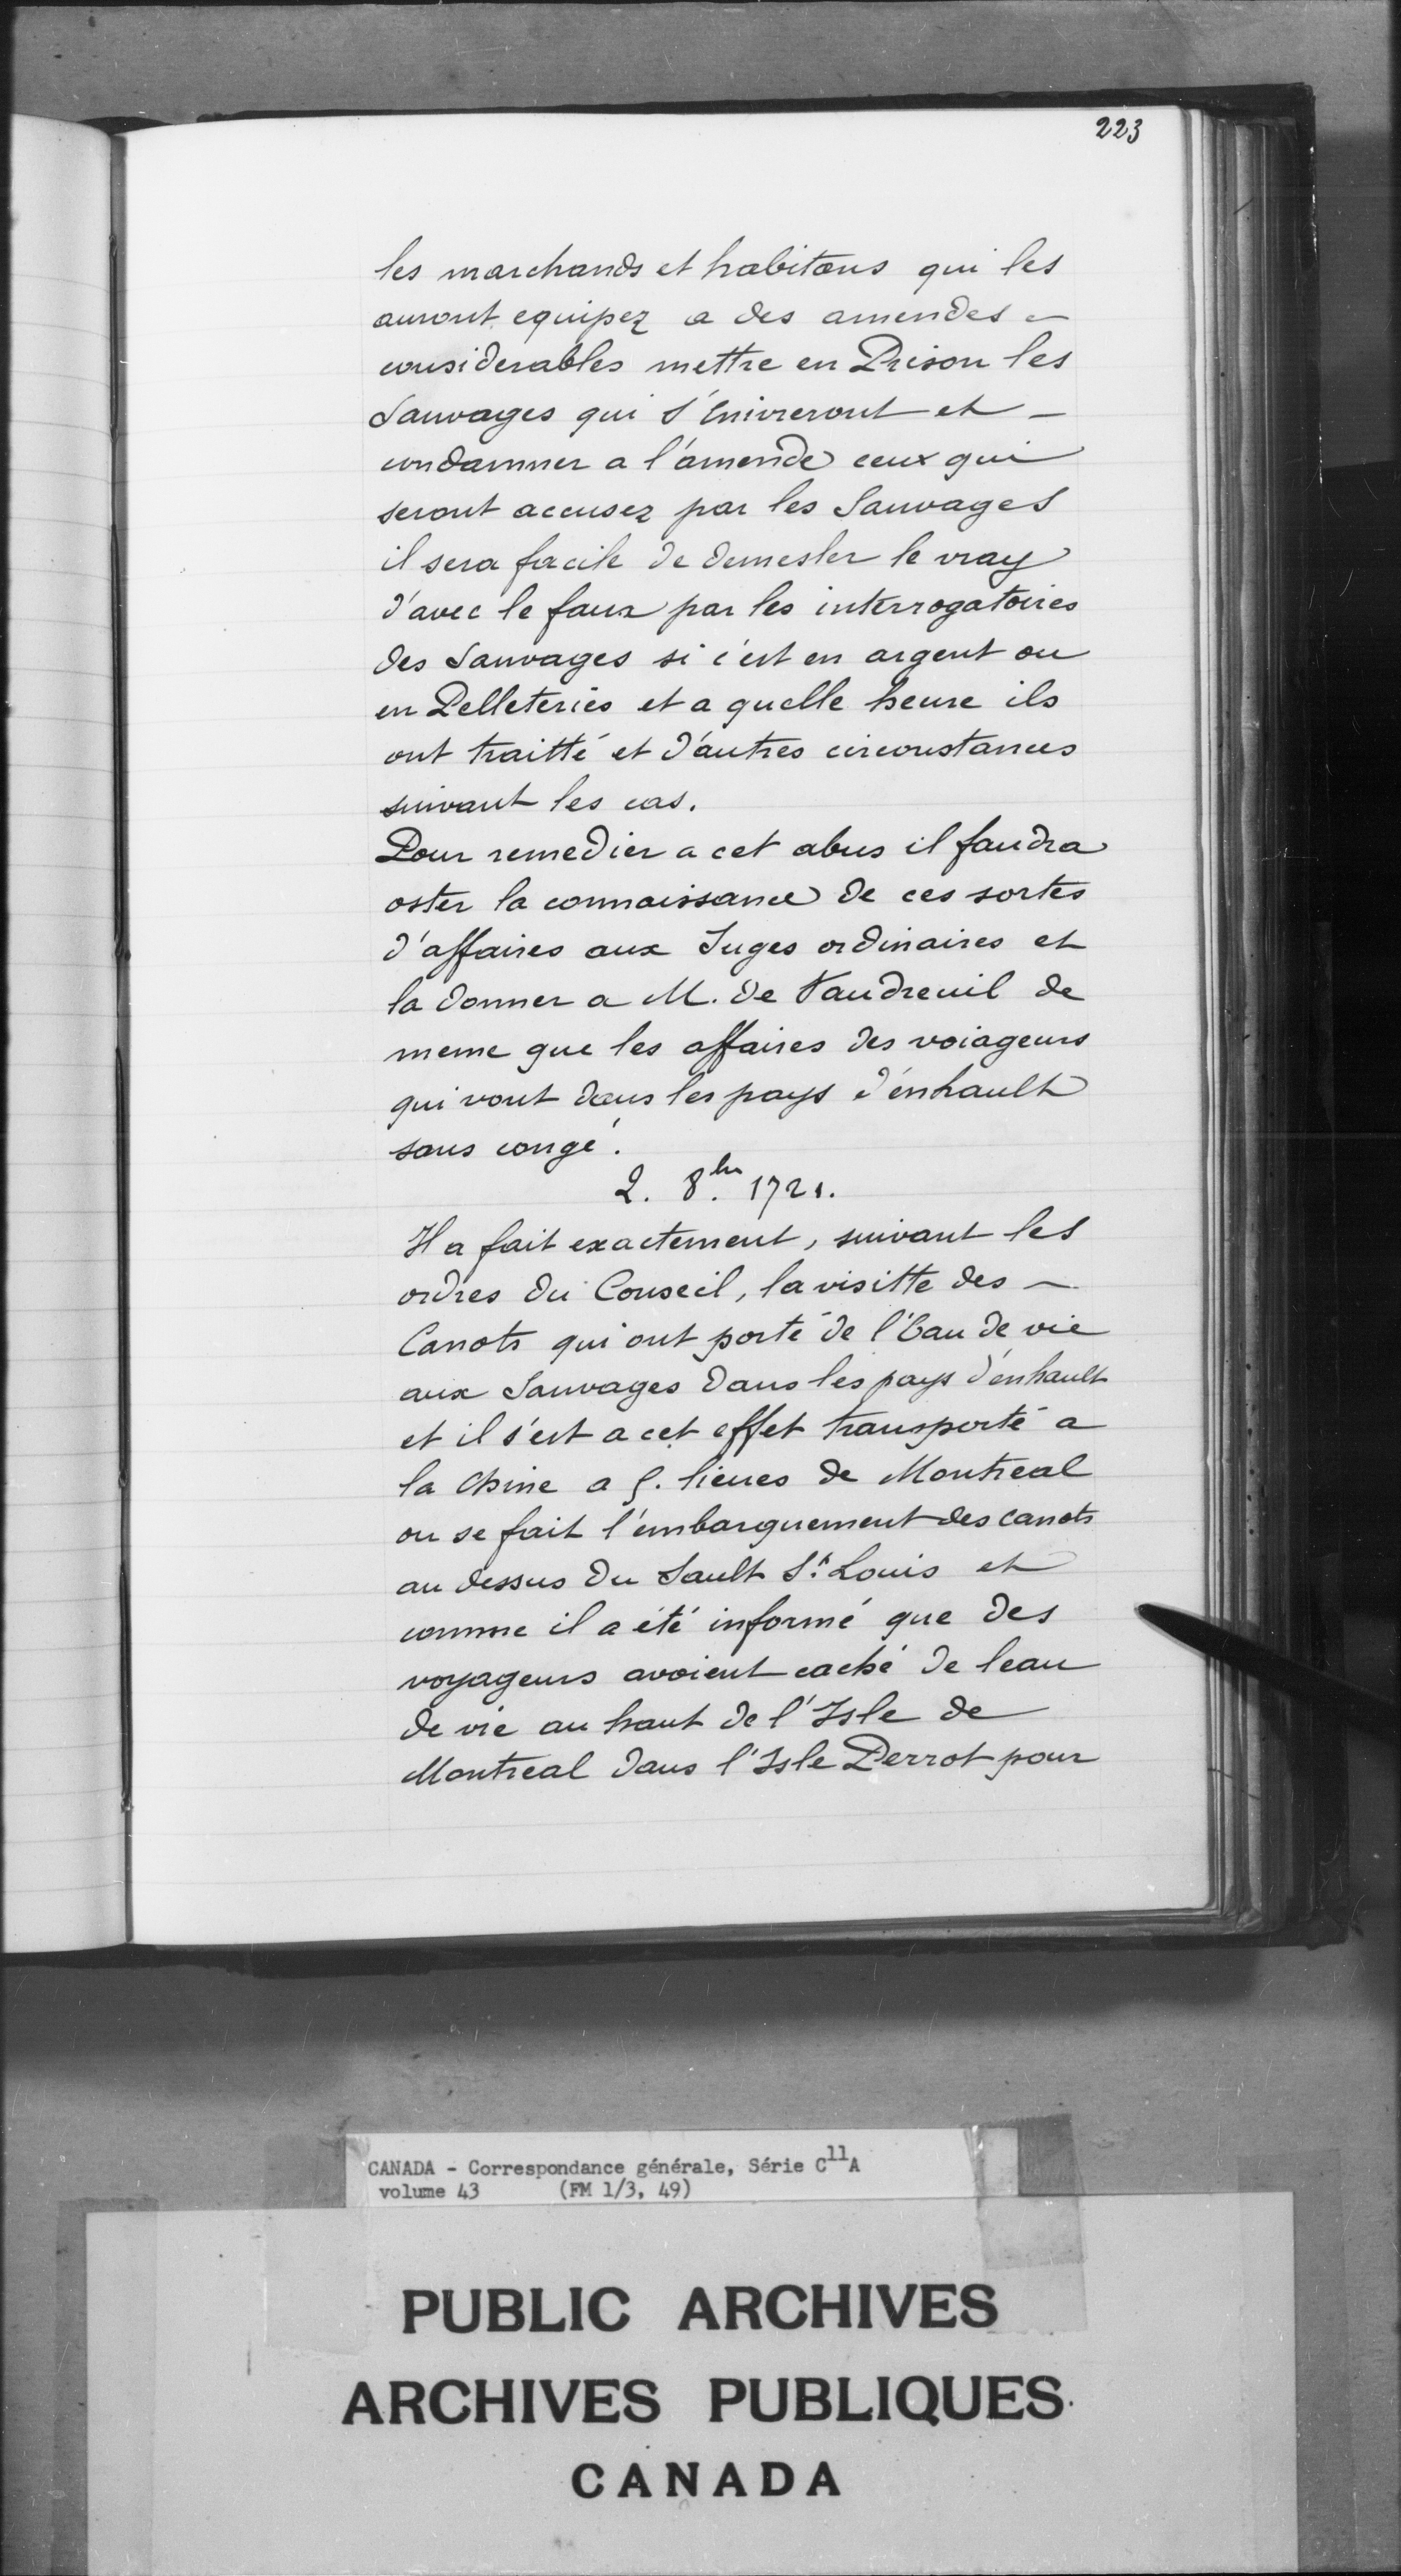 223
les marchands et habitans qui les
auront equipez a des amendes -
considerables mettre en Prison les
Sauvages qui s'Enivreront et -
condamner a l'amende ceux qui
seront accusez par les Sauvages
il sera facile de demesler le vray
d'avec le faux par les interrogatoires
des Sauvages si c'est en argent ou
en Pelleteries et a quelle heure ils
ont traitté et d'autres circonstances
suivant les cas.
Pour remedier a cet abus il faudra
oster la connaissance de ces sortes
d'affaires aux Juges ordinaires et
la donner a M. de Vaudreuil de
meme que les affaires des voiageurs
qui vont dans les pays d'enhault
sans congé.
2. 8.bre 1721.
Il a fait exactement, suivant les
ordres du Conseil, la visitte des -
Canots qui ont porté de l'Eau de vie
aux Sauvages dans les pays d'enhault
et il s'est a cet effet transporté a
la Chine a 5. lieues de Montreal
ou se fait l'embarquement des canots
au dessus du Sault St. Louis et
comme il a été informé que des
voyageurs avoient caché de leau
de vie au haut de l'Isle de
Montreal dans l'Isle Perrot pour
CANADA - Correspondance générale, Série C11A
volume 43 (FM 1/3, 49)
PUBLIC ARCHIVES
ARCHIVES PUBLIQUES
CANADA